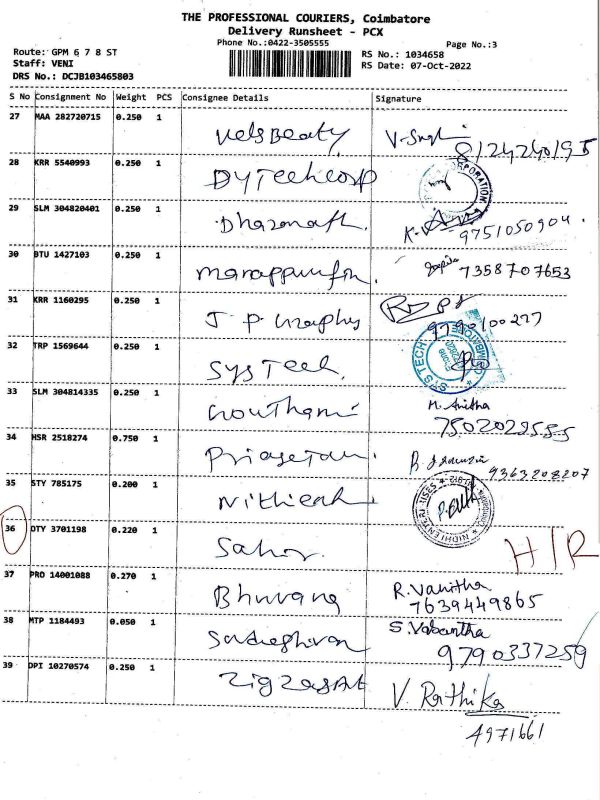 THE PROFESSIONAL COURIERS, Coimbatore
Delivery Runsheet - PCX
Phone No.:0422-3505555
Page No.:3
Route: GPM 6 7 8 ST
Staff: VENI
DRS No.: DCJB103465803
RS No.: 1034658
RS Date: 07-Oct-2022
S No Consignment No Weight PCS Consignee Details Signature
27 MAA 282720715 0.250 1 8124240195
28 KRR 5540993 0.250 1 Dytechcosp
29 SLM 304820401 0.250 1 9751050904.
30 BTU 1427103 0.250 1 7358707653
31 KRR 1160295 0.250 1 9790100277
32 TRP 1569644 0.250 1 Systech. SYSTECH
33 SLM 304814335 0.250 1 Gouthami M. Anitha
7502029555
34 HSR 2518274 0.750 1 9363208207
35 STY 785175 0.200 1 NIDHI ENTERPRISES
36 OTY 3701198 0.220 1 H/R
37 PRO 14001088 0.270 1 Bhuvana R. Vanitha
7639449865
38 MTP 1184493 0.050 1 S. Vasantha
9790337259
39 DPI 10270574 0.250 1 V. Rathika
4971661